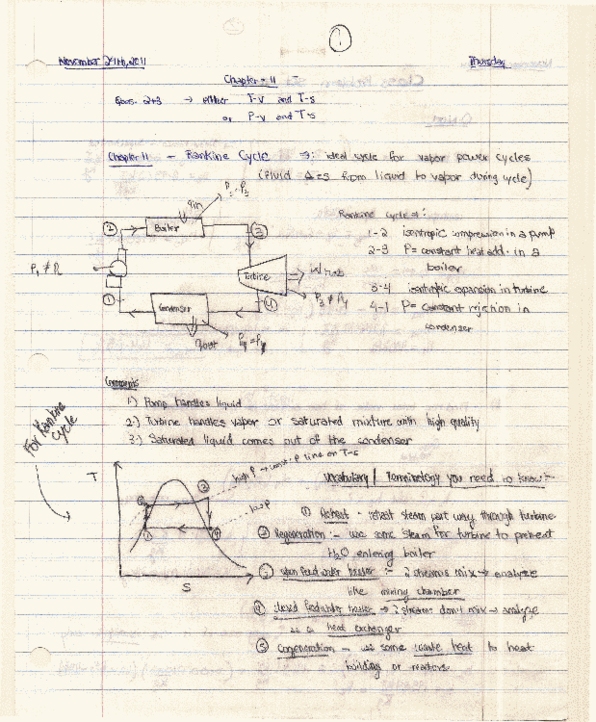 ①
November 24th, 2011 Thursday
Chapter 11
Ques. 2+3 → either T-v and T-s
or P-v and T-s
Chapter 11 - Rankine Cycle → : ideal cycle for vapor power cycles
(Fluid Δ=s from liquid to vapor during cycle)
qin
② Boiler ③
Rankine cycle of:
1-2 isentropic compression in a pump
2-3 P= constant heat add. in a
boiler
3-4 isentropic expansion in turbine
4-1 P= constant rejction in
condenser
Turbine
P3 ≠ P4
① Condenser ④
qout
Components
1.) Pump handles liquid
2.) Turbine handles vapor or saturated mixture with high quality
3.) Saturated liquid comes out of the condensor
For Rankine
cycle
high P → const. P line on T-s
low P
T
S
Vocabulary/ Terminology you need to know:-
① Reheat - reheat steam part way through turbine
② Regeneration :- use some steam for turbine to preheat
H2O entering boiler
③ open feed water heater :- 2 streams mix → analyze
like mixing chamber
④ closed feedwater heater → 2 streams don't mix → analyze
as a heat exchanger
⑤ Cogeneration - use some waste heat to heat
building or reactors